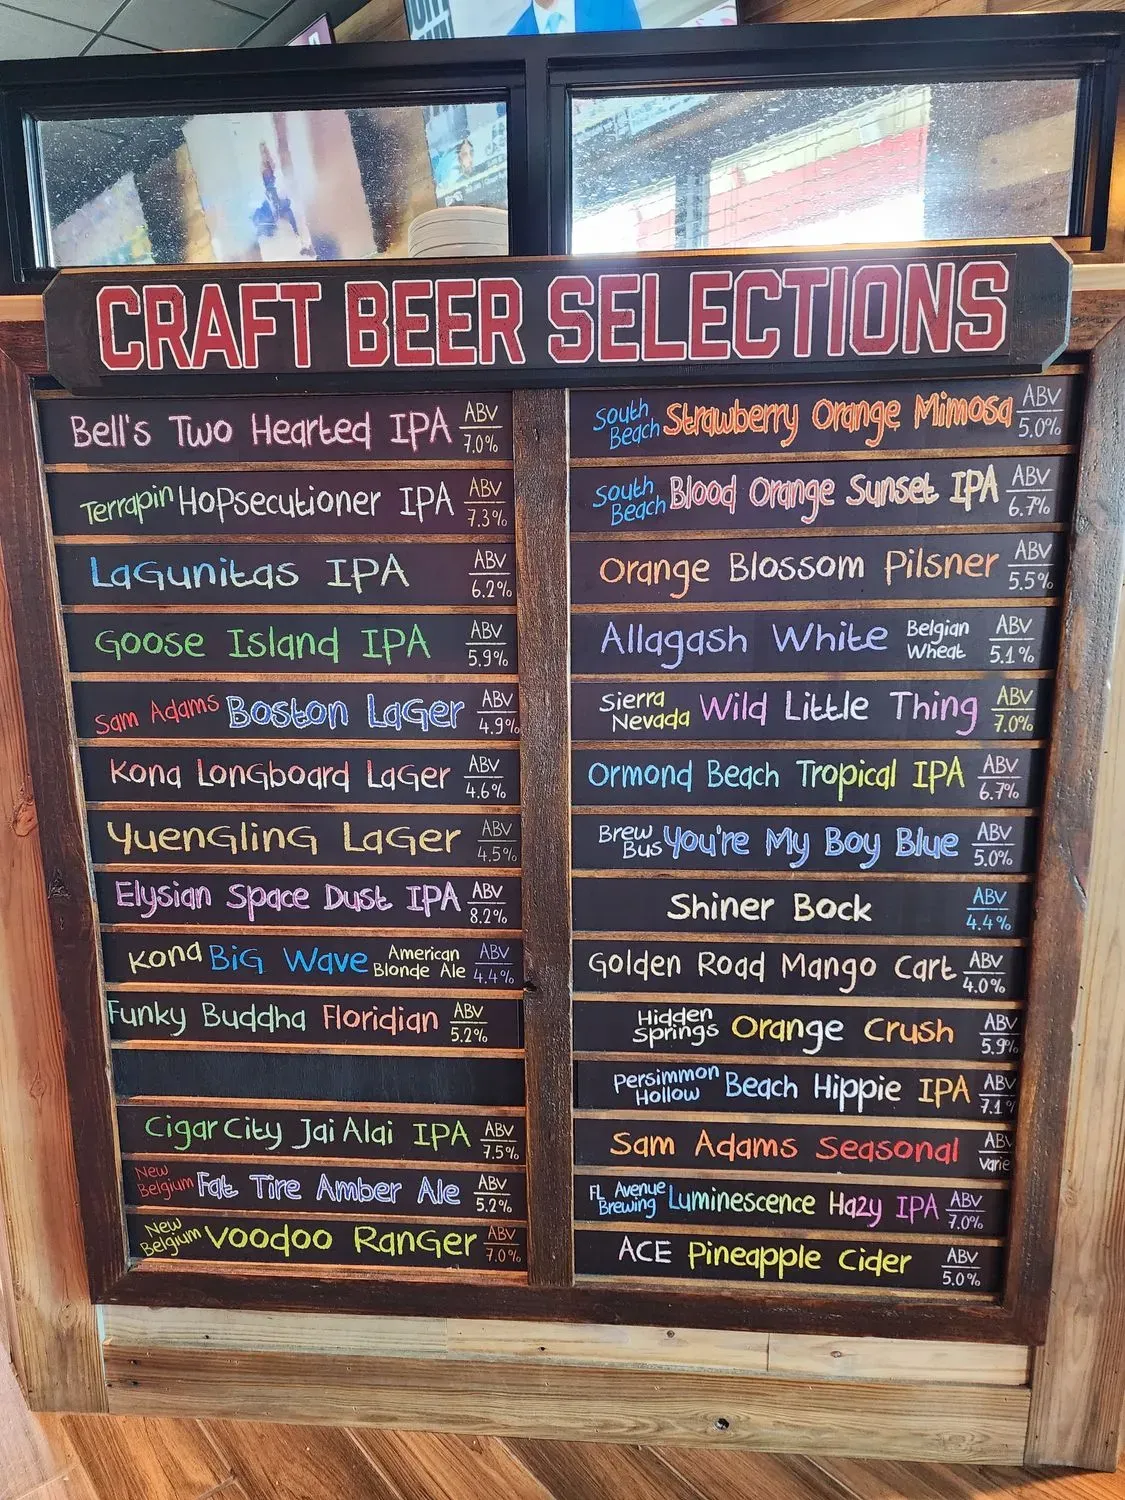 CRAFT BEER SELECTIONS
Bell's Two Hearted IPA ABV 7.0%
Terrapin HOPsecutioner IPA ABV 7.3%
LaGunitas IPA ABV 6.2%
Goose Island IPA ABV 5.9%
Sam Adams Boston LaGer ABV 4.9%
Kona LonGboard LaGer ABV 4.6%
YuenGlinG LaGer ABV 4.5%
Elysian Space Dust IPA ABV 8.2%
Kona BiG Wave American Blonde Ale ABV 4.4%
Funky Buddha Floridian ABV 5.2%
Cigar City Jai Alai IPA ABV 7.5%
New Belgium Fat Tire Amber Ale ABV 5.2%
New Belgium Voodoo RanGer ABV 7.0%
South Beach Strawberry Orange Mimosa ABV 5.0%
South Beach Blood Orange Sunset IPA ABV 6.7%
Orange Blossom Pilsner ABV 5.5%
Allagash White Belgian Wheat ABV 5.1%
Sierra Nevada Wild Little Thing ABV 7.0%
Ormond Beach Tropical IPA ABV 6.7%
Brew Bus You're My Boy Blue ABV 5.0%
Shiner Bock ABV 4.4%
Golden Road Mango Cart ABV 4.0%
Hidden Springs Orange Crush ABV 5.9%
Persimmon Hollow Beach Hippie IPA ABV 7.1%
Sam Adams Seasonal ABV Varie
FL Avenue Brewing Luminescence Hazy IPA ABV 7.0%
ACE Pineapple Cider ABV 5.0%